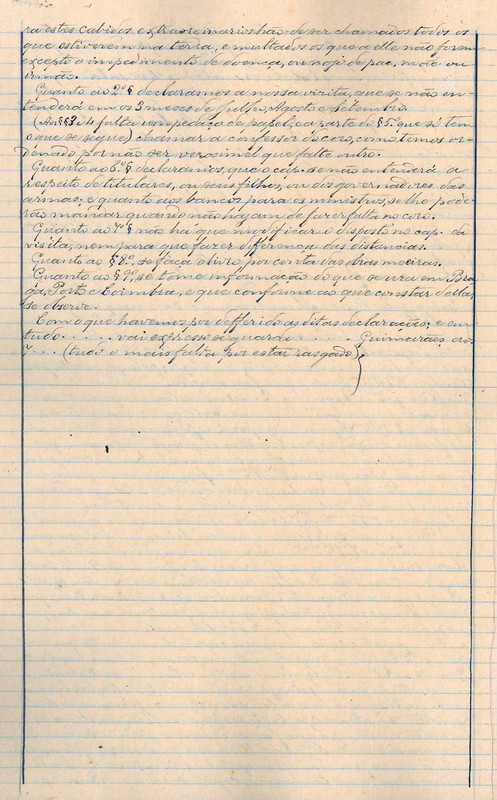 ra estes cabidos extraordinarios hão de ser chamados todos os
que estiverem na terra, e multados os que a elle não forem
excepto o impedimento de doença, ou nojo de pae, mãe ou
irmão.
Quanto ao 2º § declaramos a nossa visita, que se não en-
tenderá em os 3 meses de Julho, Agosto e Setembro.
(Aos §§ 3 e 4 falta um pedaço de papel, e a parte do § 5º que só tem
o que se segue) chamar a confessor do coro, como temos or-
denado por não ser verosimil que falte outro.
Quanto ao 6º § declaramos, que o cap. se não entenderá a
respeito de titulares, ou seus filhos, ou dos governadores das
armas; e quanto aos bancos para os ministros, se lhe pode-
rão mandar quando não hajam de fazer falta no coro.
Quanto ao 7º § não ha que modificar o disposto no cap. da
visita, nem para que fazer differença das distancias.
Quanto ao § 8º, se faça o livro por conta das obras meiras.
Quanto ao § 9º, se tome informação do que se usa em Bra-
ga, Porto e Coimbra, e que conforme ao que constar d'ella,
se observe.
Com o que havemos por defferido as ditas declarações; e em
tudo . . . . . vai expresso se guarde . . . . . Guimarães, ao
7 . . . (tudo o mais falta por estar rasgado)